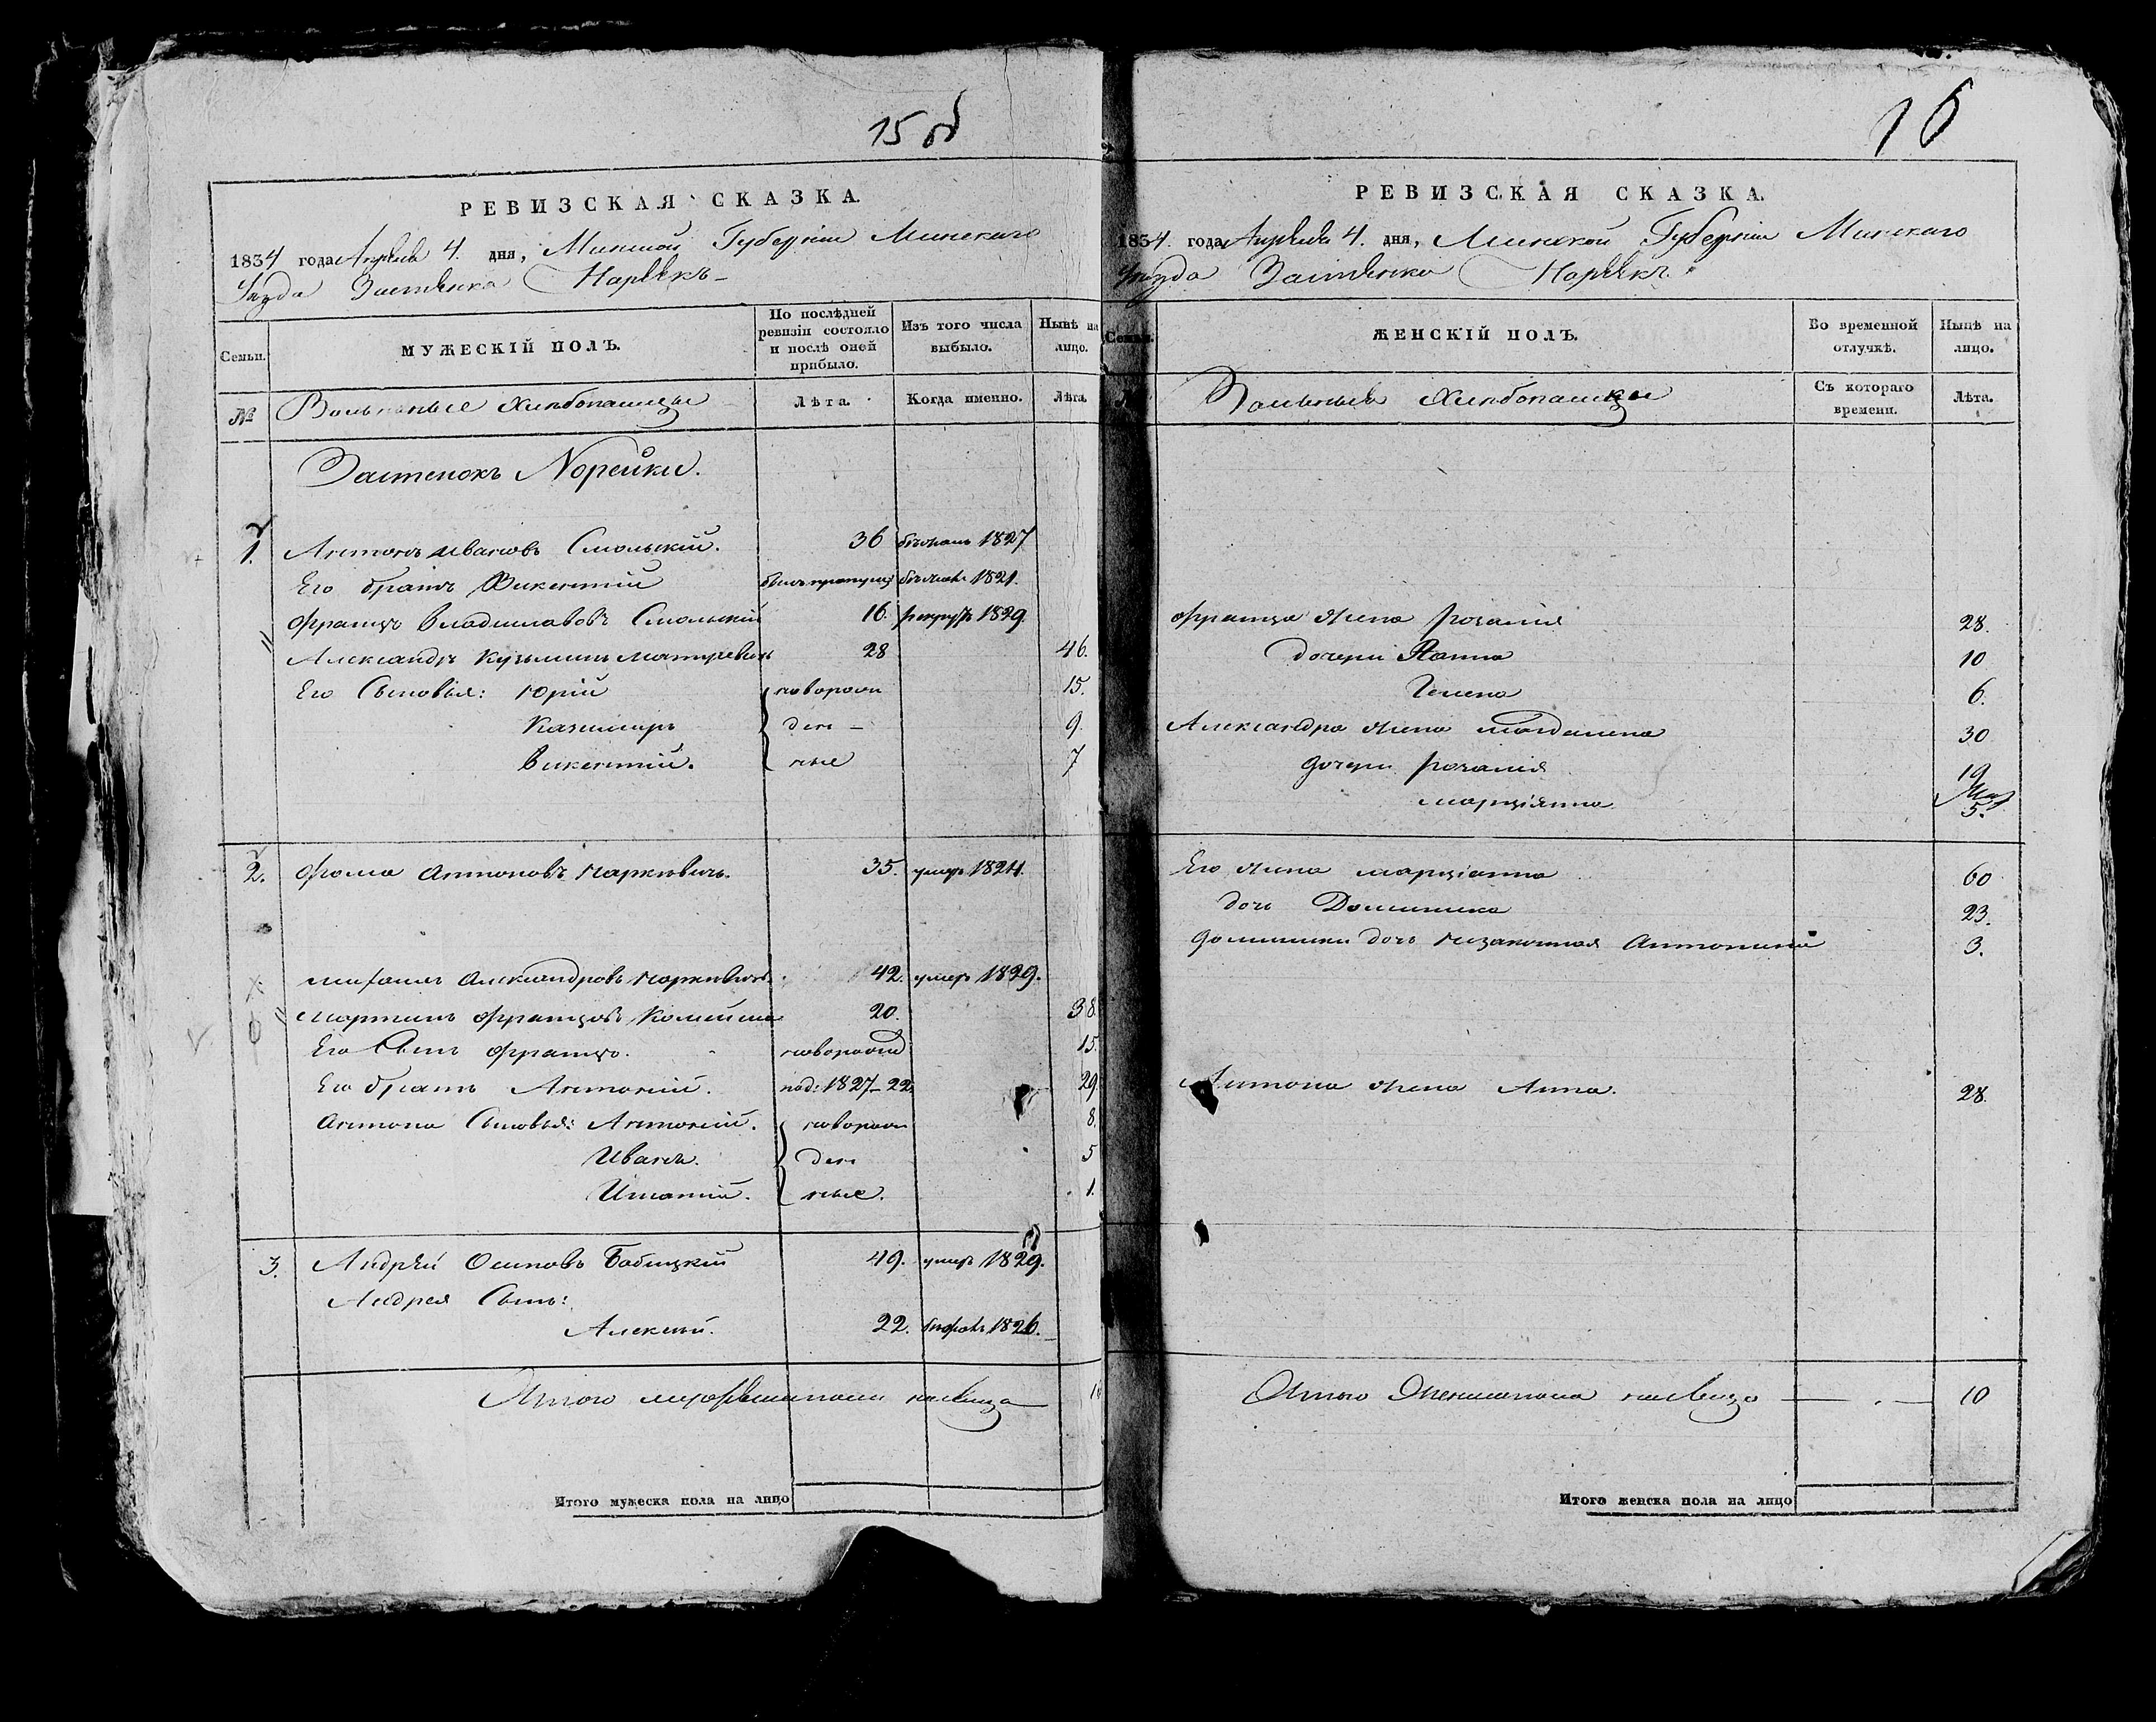 15 об
РЕВИЗСКАЯ СКАЗКА.
1834 года Апреля 4. дня, Минской Губерніи Минскаго
Уезда Застѣнка Норѣекъ
Семьи.
МУЖЕСКІЙ ПОЛЪ.
По послѣдней ревизіи состояло и послѣ оной прибыло.
Изъ того числа выбыло.
Нынѣ на лицо.
№
Вольные Хлѣбопашцы
Лѣта.
Когда именно.
Лѣта.
Застенокъ Норейки.
1. Антонъ Ивановъ Смольскій. 36 1827
Его братъ Викентій 1821.
Францъ Владиславовъ Смольскій 16. рекрут 1829.
Александръ Кузьминъ 28 46.
Его Сыновья: Юрій новорож 15.
Казимиръ ден 9.
Викентій. ные 7
2. Фома Антоновъ 35. умеръ 1824.
Михаилъ Александровъ 42. умеръ 1829.
Мартинъ Францовъ 20. 38.
Его Сынъ Францъ. новорожд 15.
Его братъ Антоній. 1827-22. 29
Антона Сыновья: Антоній. новорож 8.
Иванъ. ден 5
Игнатій. ные. 1.
3. Андрей Осиповъ Бабицкій 49. умеръ 1829.
Андрея Сынъ:
Алексѣй. 22. 1826.
Итого налицо
Итого мужеска пола на лицо
16
РЕВИЗСКАЯ СКАЗКА.
1834. года Апреля 4. дня, Минской Губерніи Минскаго
Уезда Застѣнка Норѣекъ
Семьи.
ЖЕНСКІЙ ПОЛЪ.
Во временной отлучкѣ.
Нынѣ на лицо.
№
Вольные Хлѣбопашцы
Съ котораго времени.
Лѣта.
Франца жена Розалія 28.
дочери Анна 10
Гелена 6.
Александра жена Магдалена 30
дочери Розалія 19
Марціянна 5.
Его жена Марціанна 60
дочь Доминика 23.
Доминики дочь незаконная Антонина 3.
Антона жена Анна. 28.
Итого женска пола налицо 10
Итого женска пола на лицо